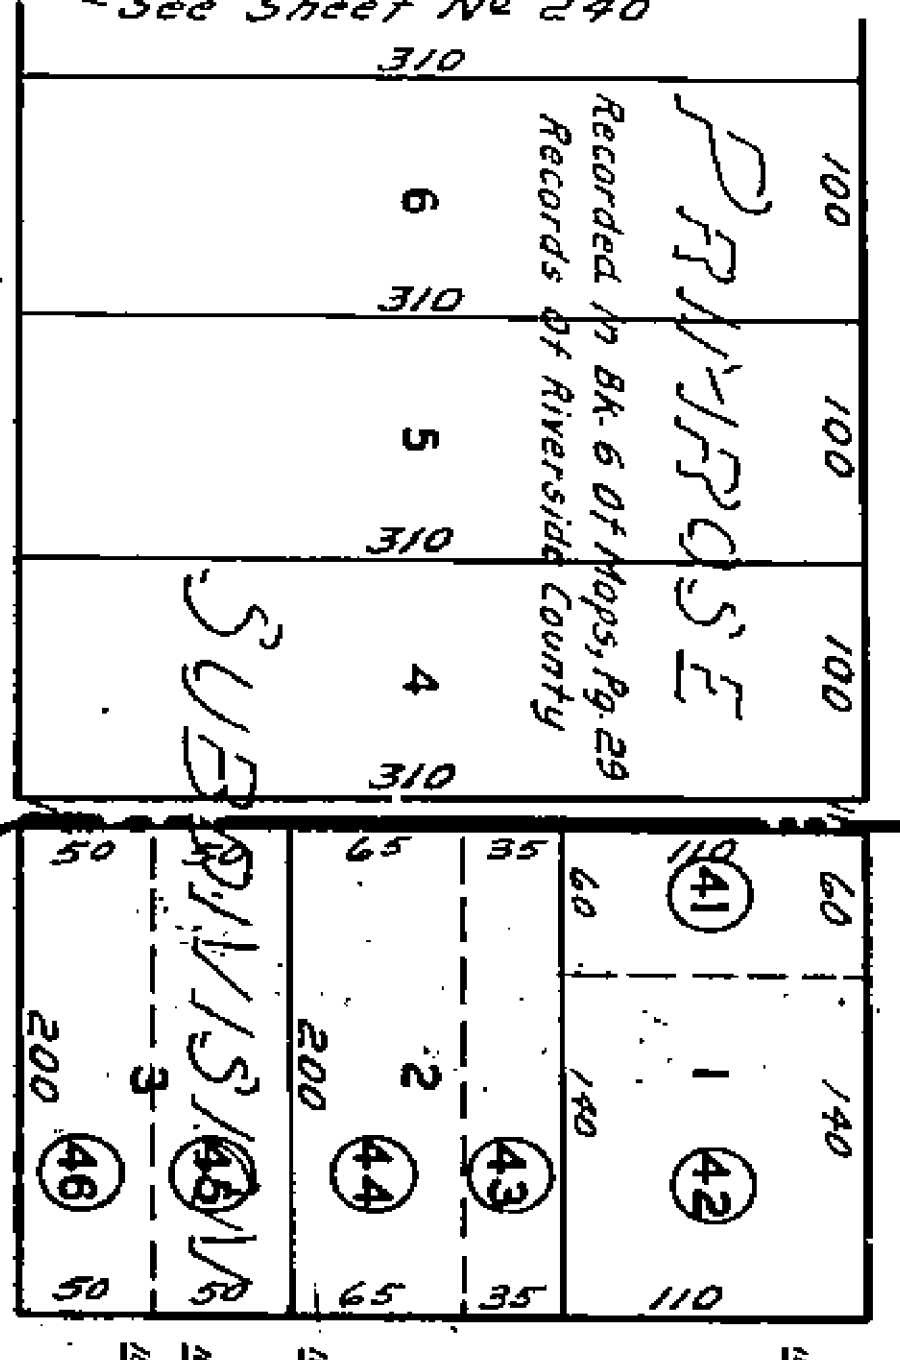 See Sheet No 240
310
PRIMROSE
Recorded in BK. 6 Of Maps, Pg. 29
Records Of Riverside County
100
6
310
100
5
310
100
4
310
SUBDIVISION
50
50
65
35
110
41
60
60
200
3
200
2
1
140
140
46
45
44
43
42
50
50
65
35
110